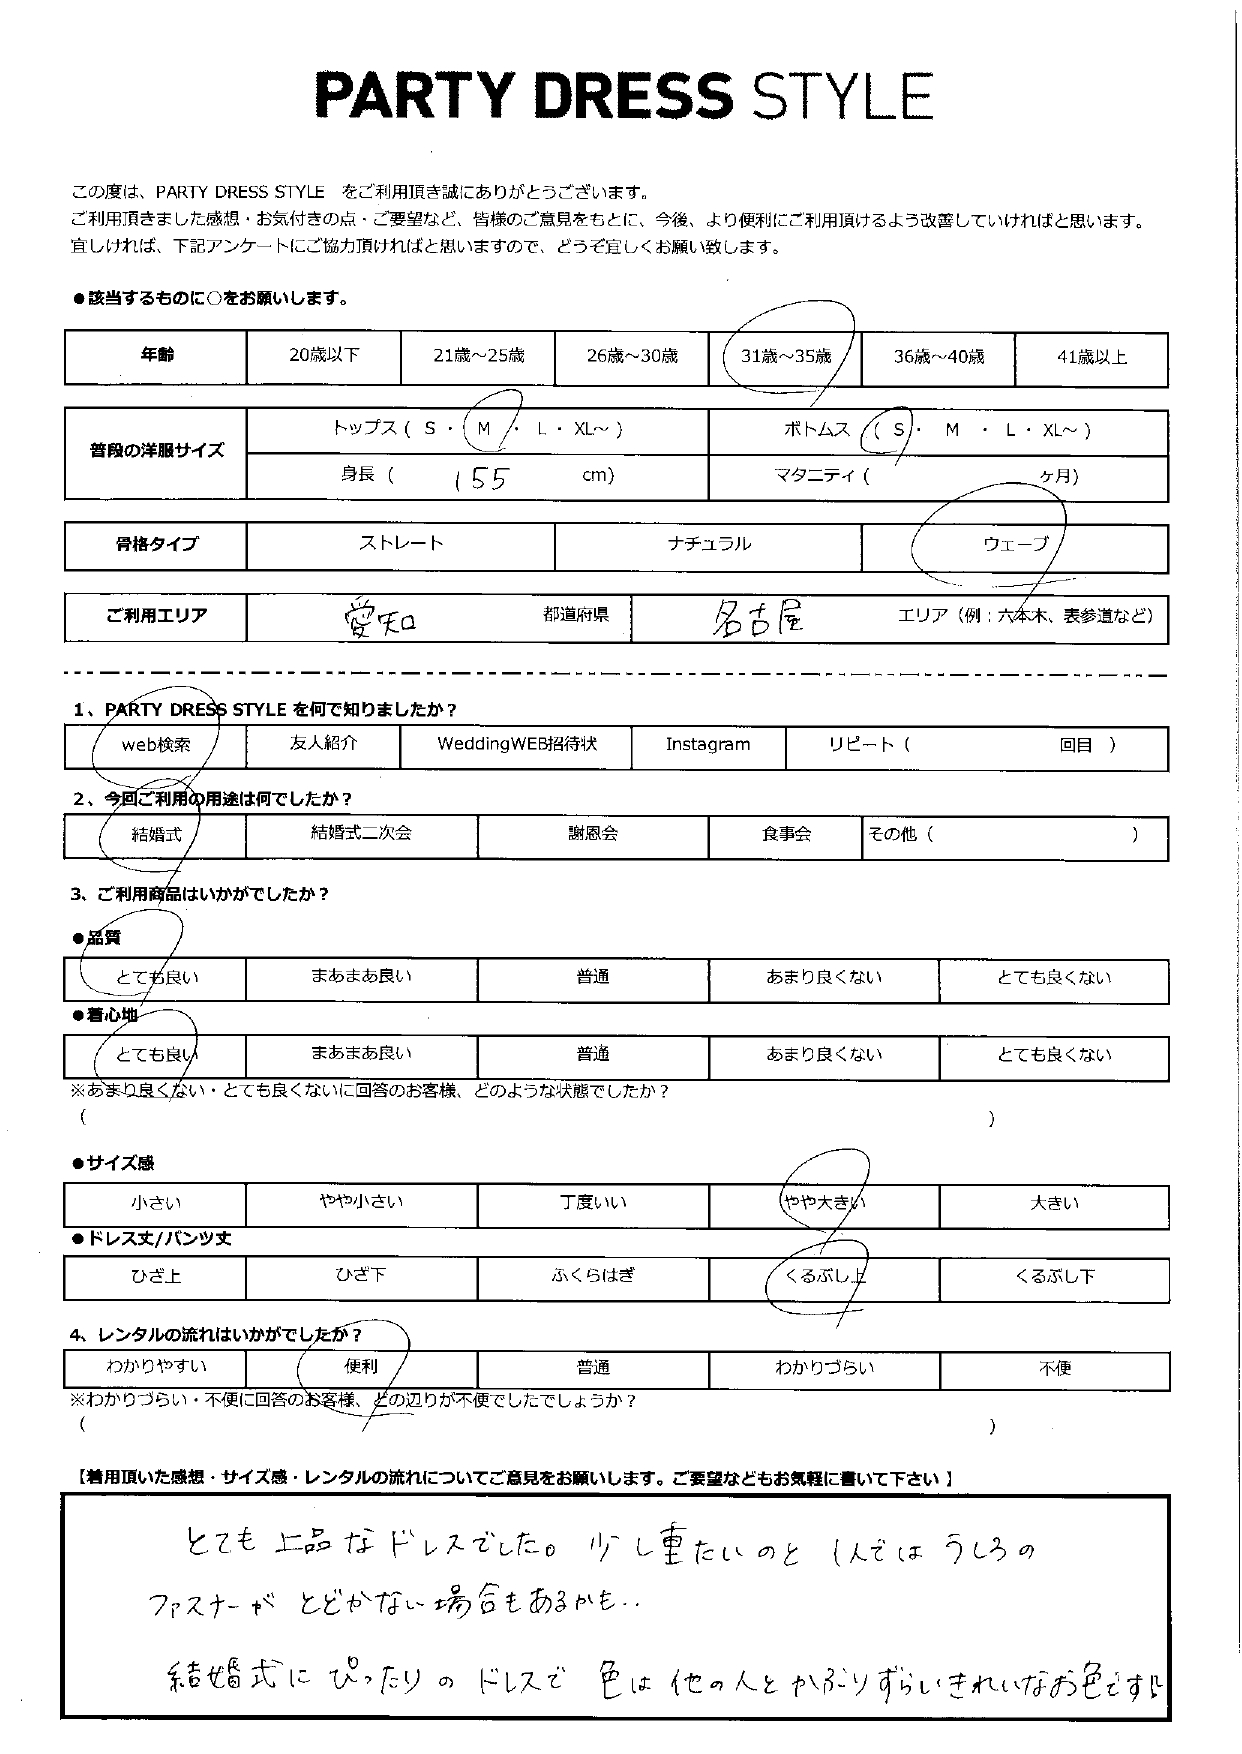 PARTY DRESS STYLE
この度は、PARTY DRESS STYLE をご利用頂き誠にありがとうございます。
ご利用頂きました感想・お気付きの点・ご要望など、皆様のご意見をもとに、今後、より便利にご利用頂けるよう改善していければと思います。
宜しければ、下記アンケートにご協力頂ければと思いますので、どうぞ宜しくお願い致します。
●該当するものに○をお願いします。
年齢 20歳以下 21歳～25歳 26歳～30歳 31歳～35歳 36歳～40歳 41歳以上
普段の洋服サイズ
トップス ( S ・ M ・ L ・ XL～ ) ボトムス ( S ・ M ・ L ・ XL～ )
身長 ( 155 cm) マタニティ ( ヶ月)
骨格タイプ ストレート ナチュラル ウェーブ
ご利用エリア 愛知 都道府県 名古屋 エリア（例：六本木、表参道など）
1、PARTY DRESS STYLE を何で知りましたか？
web検索 友人紹介 WeddingWEB招待状 Instagram リピート ( 回目 )
2、今回ご利用の用途は何でしたか？
結婚式 結婚式二次会 謝恩会 食事会 その他 ( )
3、ご利用商品はいかがでしたか？
●品質
とても良い まあまあ良い 普通 あまり良くない とても良くない
●着心地
とても良い まあまあ良い 普通 あまり良くない とても良くない
※あまり良くない・とても良くないに回答のお客様、どのような状態でしたか？
( )
●サイズ感
小さい やや小さい 丁度いい やや大きい 大きい
●ドレス丈/パンツ丈
ひざ上 ひざ下 ふくらはぎ くるぶし上 くるぶし下
4、レンタルの流れはいかがでしたか？
わかりやすい 便利 普通 わかりづらい 不便
※わかりづらい・不便に回答のお客様、どの辺りが不便でしたでしょうか？
( )
【着用頂いた感想・サイズ感・レンタルの流れについてご意見をお願いします。ご要望などもお気軽に書いて下さい 】
とても上品なドレスでした。少し重たいのと 1人では うしろの
ファスナーが とどかない場合もあるかも..
結婚式に ぴったりの ドレスで 色は 他の人と かぶりずらいきれいなお色です!!